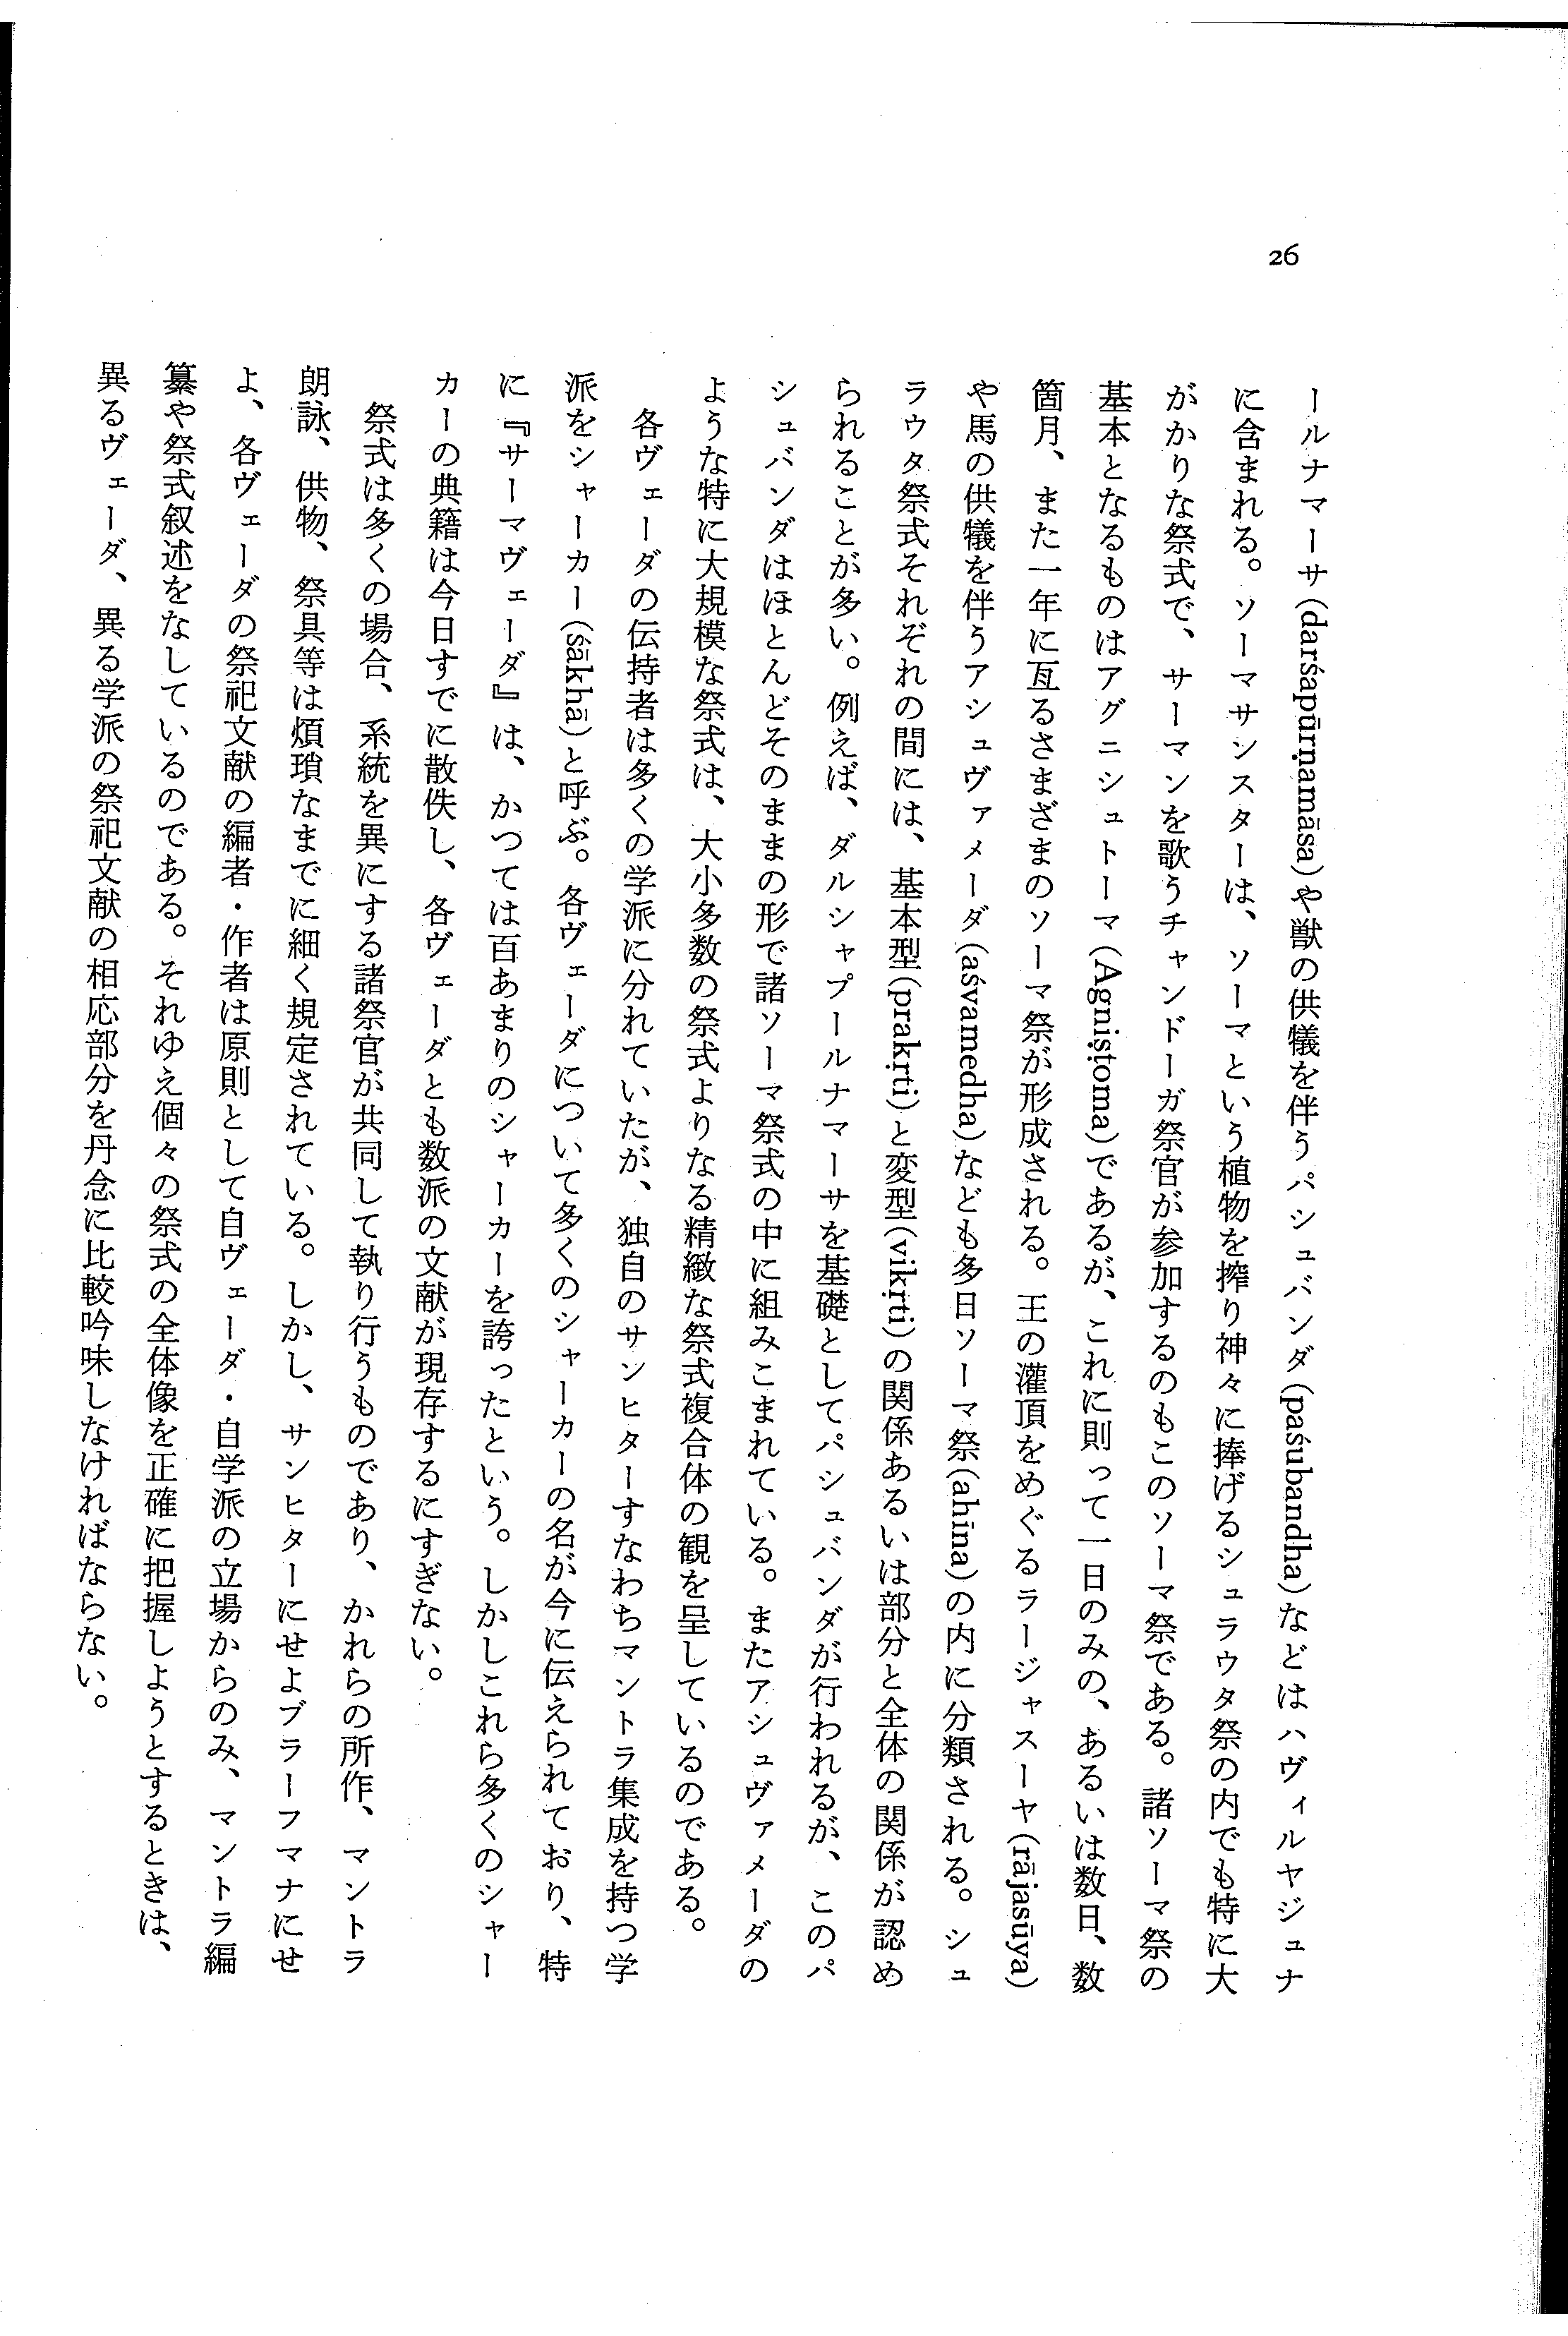 26
ールナマーサ(darśapūrṇamāsa)や獣の供犠を伴うパシュバンダ(paśubandha)などはハヴィルヤジュナ
に含まれる。ソーマサンスターは、ソーマという植物を搾り神々に捧げるシュラウタ祭の内でも特に大
がかりな祭式で、サーマンを歌うチャンドーガ祭官が参加するのもこのソーマ祭である。諸ソーマ祭の
基本となるものはアグニシュトーマ(Agniṣṭoma)であるが、これに則って一日のみの、あるいは数日、数
箇月、また一年に亙るさまざまのソーマ祭が形成される。王の灌頂をめぐるラージャスーヤ(rājasūya)
や馬の供犠を伴うアシュヴァメーダ(aśvamedha)なども多日ソーマ祭(ahīna)の内に分類される。シュ
ラウタ祭式それぞれの間には、基本型(prakṛti)と変型(vikṛti)の関係あるいは部分と全体の関係が認め
られることが多い。例えば、ダルシャプールナマーサを基礎としてパシュバンダが行われるが、このパ
シュバンダはほとんどそのままの形で諸ソーマ祭式の中に組みこまれている。またアシュヴァメーダの
ような特に大規模な祭式は、大小多数の祭式よりなる精緻な祭式複合体の観を呈しているのである。
各ヴェーダの伝持者は多くの学派に分れていたが、独自のサンヒターすなわちマントラ集成を持つ学
派をシャーカー(śākhā)と呼ぶ。各ヴェーダについて多くのシャーカーの名が今に伝えられており、特
に『サーマヴェーダ』は、かつては百あまりのシャーカーを誇ったという。しかしこれら多くのシャー
カーの典籍は今日すでに散佚し、各ヴェーダとも数派の文献が現存するにすぎない。
祭式は多くの場合、系統を異にする諸祭官が共同して執り行うものであり、かれらの所作、マントラ
朗詠、供物、祭具等は煩瑣なまでに細く規定されている。しかし、サンヒターにせよブラーフマナにせ
よ、各ヴェーダの祭祀文献の編者・作者は原則として自ヴェーダ・自学派の立場からのみ、マントラ編
纂や祭式叙述をなしているのである。それゆえ個々の祭式の全体像を正確に把握しようとするときは、
異るヴェーダ、異る学派の祭祀文献の相応部分を丹念に比較吟味しなければならない。